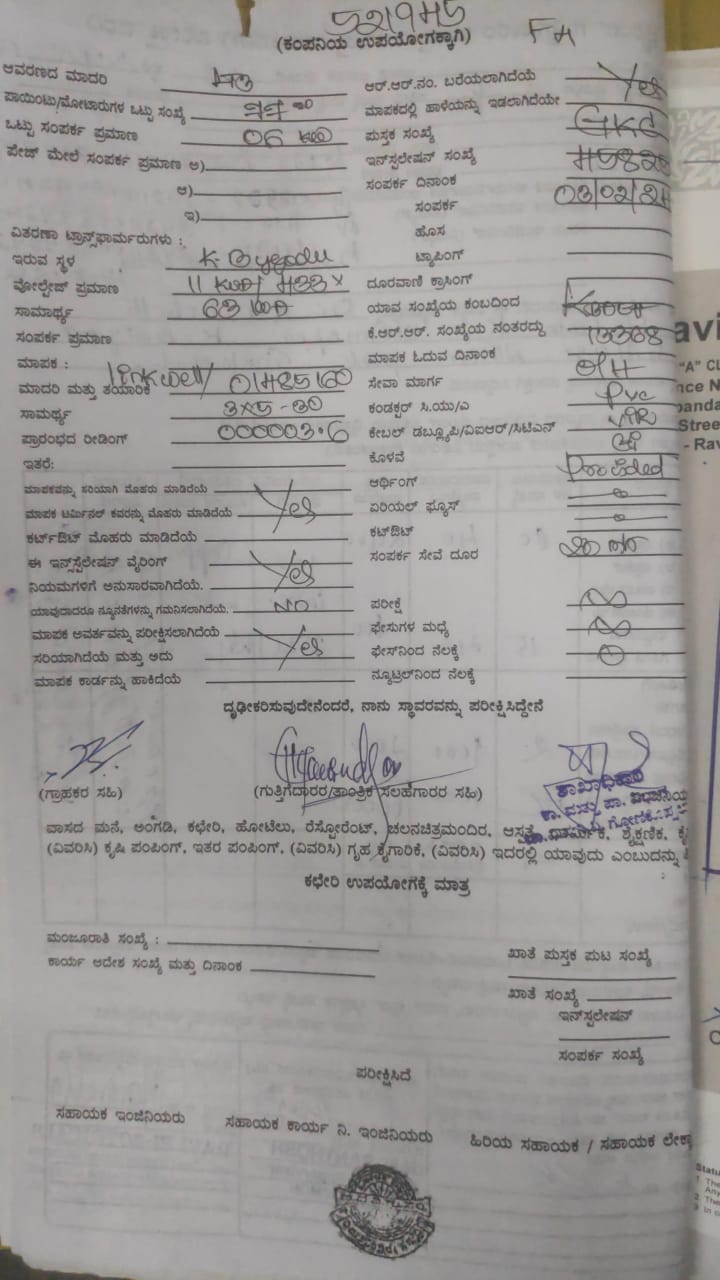 521945
(ಕಂಪನಿಯ ಉಪಯೋಗಕ್ಕಾಗಿ)
ಆವರಣದ ಮಾದರಿ
ಪಾಯಿಂಟು/ಮೋಟಾರುಗಳ ಒಟ್ಟು ಸಂಖ್ಯೆ
ಒಟ್ಟು ಸಂಪರ್ಕ ಪ್ರಮಾಣ 06 KW
ಪೇಜ್ ಮೇಲೆ ಸಂಪರ್ಕ ಪ್ರಮಾಣ ಅ)
ಆ)
ಇ)
ವಿತರಣಾ ಟ್ರಾನ್ಸ್‌ಫಾರ್ಮರುಗಳು :
ಇರುವ ಸ್ಥಳ K. Bygodu
ವೋಲ್ಟೇಜ್ ಪ್ರಮಾಣ
ಸಾಮರ್ಥ್ಯ 63
ಸಂಪರ್ಕ ಪ್ರಮಾಣ
ಮಾಪಕ :
ಮಾದರಿ ಮತ್ತು ತಯಾರಿಕೆ Linkwell/ 01485160
ಸಾಮರ್ಥ್ಯ 3X5-30
ಪ್ರಾರಂಭದ ರೀಡಿಂಗ್ 000003.6
ಇತರೆ:
ಮಾಪಕವನ್ನು ಸರಿಯಾಗಿ ಮೊಹರು ಮಾಡಿದೆಯೆ
ಮಾಪಕ ಟರ್ಮಿನಲ್ ಕವರನ್ನು ಮೊಹರು ಮಾಡಿದೆಯೆ Yes
ಕಟ್‌ಔಟ್ ಮೊಹರು ಮಾಡಿದೆಯೆ
ಈ ಇನ್ಸ್‌ಸ್ಟಲೇಷನ್ ವೈರಿಂಗ್ Yes
ನಿಯಮಗಳಿಗೆ ಅನುಸಾರವಾಗಿದೆಯೆ.
ಯಾವುದಾದರೂ ನ್ಯೂನತೆಗಳನ್ನು ಗಮನಿಸಲಾಗಿದೆಯೆ. NO
ಮಾಪಕ ಅವರ್ತವನ್ನು ಪರೀಕ್ಷಿಸಲಾಗಿದೆಯೆ Yes
ಸರಿಯಾಗಿದೆಯೆ ಮತ್ತು ಅದು
ಮಾಪಕ ಕಾರ್ಡನ್ನು ಹಾಕಿದೆಯೆ
ಆರ್.ಆರ್.ನಂ. ಬರೆಯಲಾಗಿದೆಯೆ Yes
ಮಾಪಕದಲ್ಲಿ ಹಾಳೆಯನ್ನು ಇಡಲಾಗಿದೆಯೇ
ಪುಸ್ತಕ ಸಂಖ್ಯೆ GKC
ಇನ್‌ಸ್ಟಲೇಷನ್ ಸಂಖ್ಯೆ
ಸಂಪರ್ಕ ದಿನಾಂಕ 03/02/24
ಸಂಪರ್ಕ
ಹೊಸ
ಟ್ಯಾಪಿಂಗ್
ದೂರವಾಣಿ ಕ್ರಾಸಿಂಗ್
ಯಾವ ಸಂಖ್ಯೆಯ ಕಂಬದಿಂದ
ಕೆ.ಆರ್.ಆರ್. ಸಂಖ್ಯೆಯ ನಂತರದ್ದು 13368
ಮಾಪಕ ಓದುವ ದಿನಾಂಕ
ಸೇವಾ ಮಾರ್ಗ O/H
ಕಂಡಕ್ಟರ್ ಸಿ.ಯು/ಎ PVC
ಕೇಬಲ್ ಡಬ್ಲ್ಯೂಪಿ/ವಿಐಆರ್/ಸಿಟಿಎಸ್ VIR
ಕೊಳವೆ
ಅರ್ಥಿಂಗ್ Provided
ಏರಿಯಲ್ ಫ್ಯೂಸ್
ಕಟ್‌ಔಟ್
ಸಂಪರ್ಕ ಸೇವೆ ದೂರ
ಪರೀಕ್ಷೆ
ಫೇಸುಗಳ ಮಧ್ಯೆ
ಫೇಸ್‌ನಿಂದ ನೆಲಕ್ಕೆ
ನ್ಯೂಟ್ರಲ್‌ನಿಂದ ನೆಲಕ್ಕೆ
ದೃಢೀಕರಿಸುವುದೇನೆಂದರೆ, ನಾನು ಸ್ಥಾವರವನ್ನು ಪರೀಕ್ಷಿಸಿದ್ದೇನೆ
(ಗ್ರಾಹಕರ ಸಹಿ)
(ಗುತ್ತಿಗೆದಾರರ/ತಾಂತ್ರಿಕ ಸಲಹೆಗಾರರ ಸಹಿ)
ಶಾಖಾಧಿಕಾರಿ
ವಾಸದ ಮನೆ, ಅಂಗಡಿ, ಕಛೇರಿ, ಹೋಟೆಲು, ರೆಸ್ಟೋರೆಂಟ್, ಚಲನಚಿತ್ರಮಂದಿರ, ಆಸ್ಪತ್ರೆ, ಧಾರ್ಮಿಕ, ಶೈಕ್ಷಣಿಕ,
(ವಿವರಿಸಿ) ಕೃಷಿ ಪಂಪಿಂಗ್, ಇತರ ಪಂಪಿಂಗ್, (ವಿವರಿಸಿ) ಗೃಹ ಕೈಗಾರಿಕೆ, (ವಿವರಿಸಿ) ಇದರಲ್ಲಿ ಯಾವುದು ಎಂಬುದನ್ನು
ಕಛೇರಿ ಉಪಯೋಗಕ್ಕೆ ಮಾತ್ರ
ಮಂಜೂರಾತಿ ಸಂಖ್ಯೆ :
ಕಾರ್ಯ ಆದೇಶ ಸಂಖ್ಯೆ ಮತ್ತು ದಿನಾಂಕ
ಖಾತೆ ಪುಸ್ತಕ ಪುಟ ಸಂಖ್ಯೆ
ಖಾತೆ ಸಂಖ್ಯೆ
ಇನ್‌ಸ್ಟಲೇಷನ್
ಸಂಪರ್ಕ ಸಂಖ್ಯೆ
ಪರೀಕ್ಷಿಸಿದೆ
ಸಹಾಯಕ ಇಂಜಿನಿಯರು
ಸಹಾಯಕ ಕಾರ್ಯ ನಿ. ಇಂಜಿನಿಯರು
ಹಿರಿಯ ಸಹಾಯಕ / ಸಹಾಯಕ